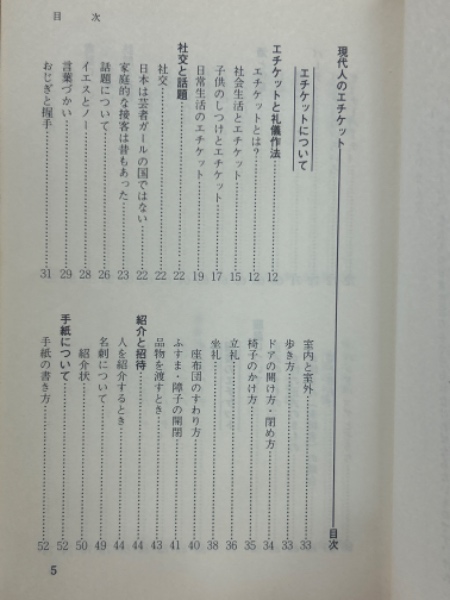 目次
現代人のエチケット――目次
エチケットについて
エチケットと礼儀作法……12
エチケットとは？……12
社会生活とエチケット……15
子供のしつけとエチケット……17
日常生活のエチケット……19
社交と話題……22
社交……22
日本は芸者ガールの国ではない……22
家庭的な接客は昔もあった……23
話題について……26
イエスとノー……28
言葉づかい……29
おじぎと握手……31
室内と室外……33
歩き方……33
ドアの開け方・閉め方……34
椅子のかけ方……35
立礼……36
坐礼……38
座布団のすわり方……40
ふすま・障子の開閉……41
品物を渡すとき……43
紹介と招待……44
人を紹介するとき……44
名刺について……49
紹介状……50
手紙について……52
手紙の書き方……52
5